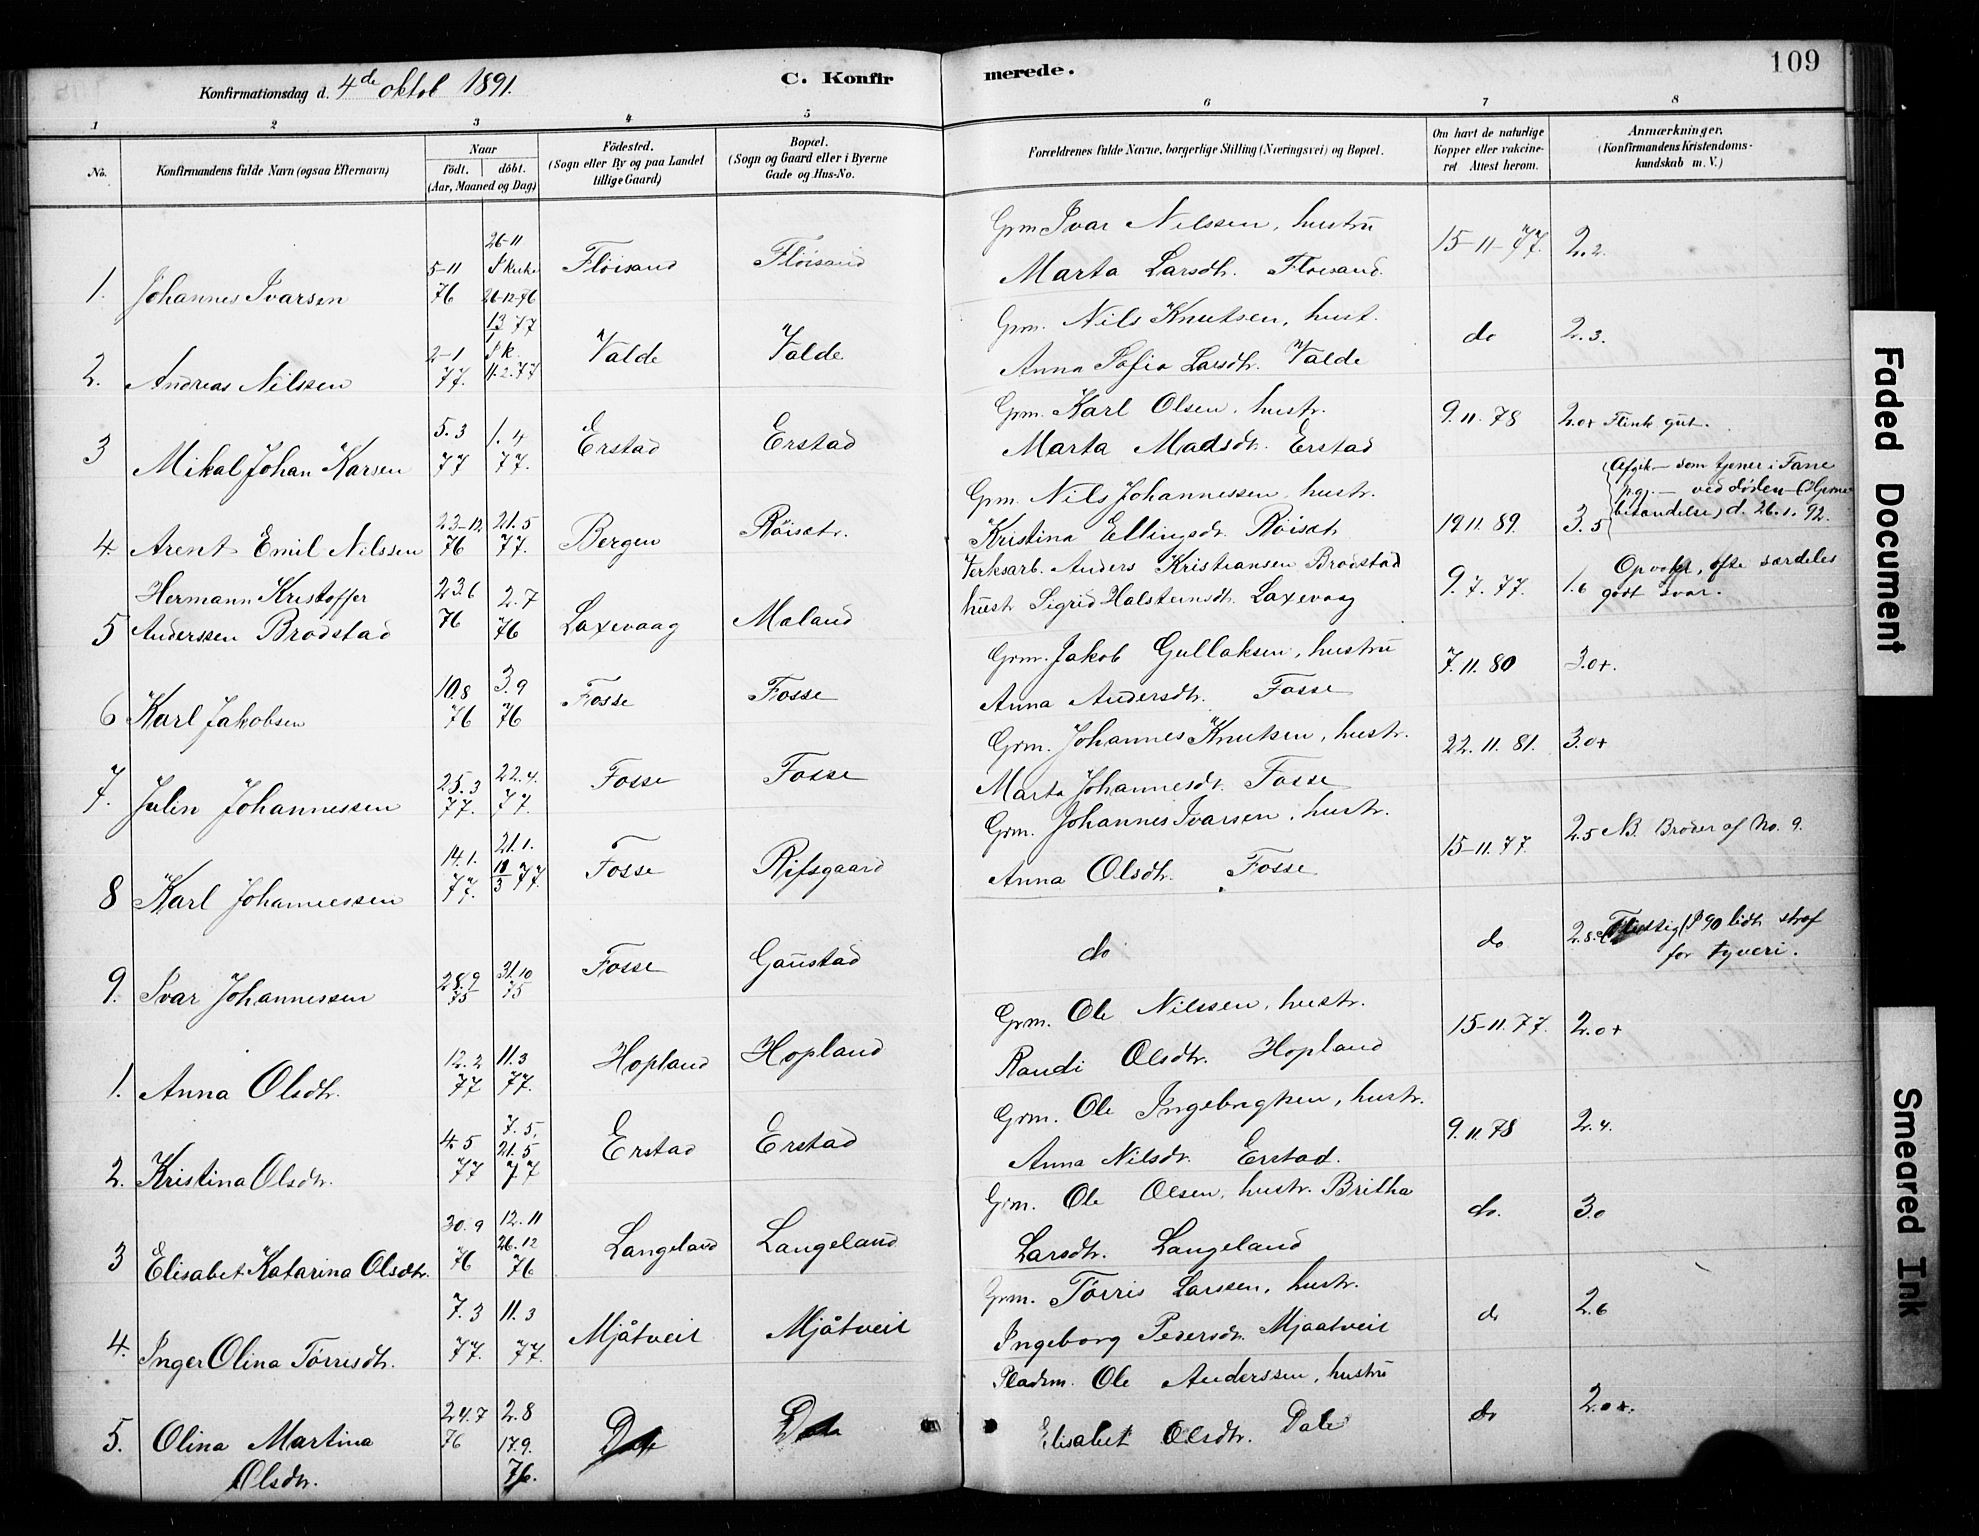 109
Konfirmationsdag d. 4de oktob 1891.
C. Konfirmerede.
1 2 3 4 5 6 7 8
No.
Konfirmandens fulde Navn (ogsaa Efternavn)
Naar
födt. döbt.
(Aar, Maaned og Dag)
Födested.
(Sogn eller By og paa Landet
tillige Gaard)
Bopæl.
(Sogn og Gaard eller i Byerne
Gade og Hus-No.
Forældrenes fulde Navne, borgerlige Stilling (Næringsvei) og Bopæl.
Om havt de naturlige
Kopper eller vakcine-
ret Attest herom.
Anmærkninger.
(Konfirmandens Kristendoms-
kundskab m. V.)
1. Johannes Ivarsen 5-11 76 26-11 26-12-76 Flöisand Flöisand
Grm Ivar Nilssen, hustru
Marta Larsdtr. Flöisand. 15-11-77. 2.2.
2. Andreas Nilssen 2-1 77. 13/1 77 11.2.77 Valde Valde
Grm. Nils Knutsen, hust.
Anna Sofia Larsdtr. Valde do 2.3.
3 Mikal Johan Karsen 5.3 77 1.4 77. Erstad Erstad
Grm. Karl Olsen, hustr.
Marta Madsdtr. Erstad 9.11.78 2.0+ Flink gut.
4. Arent Emil Nilssen 23-12 76 21.5 77. Bergen Röisetr.
Grm. Nils Johannessen, hustr.
Kristina Ellingsdr. Röisetr 19 11.89. 3.5
Afgik som tjener i Fane
ved döden
d. 26.1.92.
5 Hermann Kristoffer
Anderssen Brodstad 23.6 76 2.7 76 Laxevaag Moland
Verksarb. Anders Kristiansen Brodstad
hustr Sigrid Halsteinsdtr. Laxevaag 9.7.77. 1.6 Opvakt, ofte særdeles
godt svar.
6 Karl Jakobsen 10.8 76 3.9 76 Fosse Fosse
Grm. Jakob Gullaksen, hustru
Anna Andersdtr. Fosse 7.11.80 3.0+.
7. Julin Johannessen 25.3 77. 22.4. 77. Fosse Fosse
Grm. Johannes Knutsen, hustr.
Marta Johannesdtr. Fosse 22.11.81. 3.0+
8 Karl Johannessen 14.1. 77. 21.1. 18/3 77. Fosse Rifsgaard
Grm. Johannes Ivarsen, hustr.
Anna Olsdtr. Fosse 15-11.77. 2.5 NB. Broder af No. 9.
9. Ivar Johannessen 28.9 75 31.10 75 Fosse Gaustad
do do 2.8. 90 lidt straf
for tyveri.
1. Anna Olsdtr. 12.2 77 11.3 77. Hopland Hopland
Grm. Ole Nilssen, hustr.
Randi Olsdtr. Hopland 15-11.77. 2.0+
2. Kristina Olsdtr. 4.5 77 7.5. 21.5 77 Erstad Erstad
Grm. Ole Ingebrigtsen, hustr.
Anna Nilsdr. Erstad. 9.11.78 2.4.
3 Elisabet Katarina Olsdtr. 30.9 76 12.11 26.12 76 Langeland Langeland
Grm. Ole Olsen, hustr. Britha
Larsdtr. Langeland do. 3.0
4. Inger Olina Törrisdtr. 7.3 77. 11.3 77. Mjåtveit Mjåtveit
Grm. Törris Larssen, hustr.
Ingeborg Pedersdtr. Mjaatveit do 2.6
5. Olina Martina
Olsdtr. 24.7 76 2.8 17.9. 76. Dale Dale
Pladsm. Ole Anderssen, hustru
Elisabet Olsdtr. Dale do 2.0+.
Faded Document
Smeared Ink